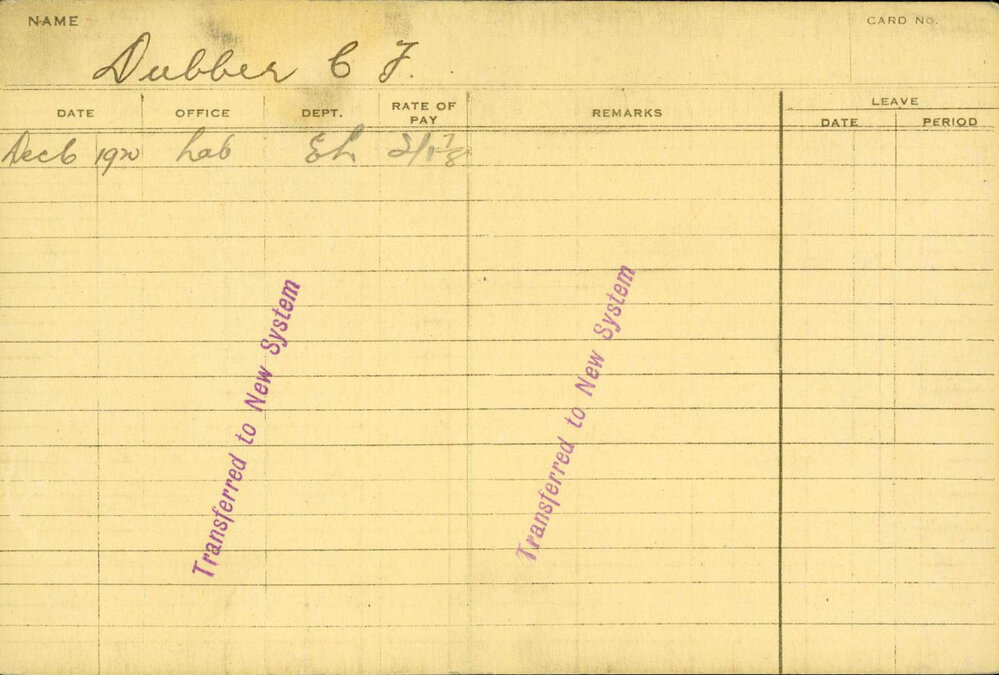 NAME
CARD NO.
Dubber C F.
DATE OFFICE DEPT. RATE OF PAY REMARKS LEAVE
DATE PERIOD
Dec 6 1920 Lab
Transferred to New System
Transferred to New System